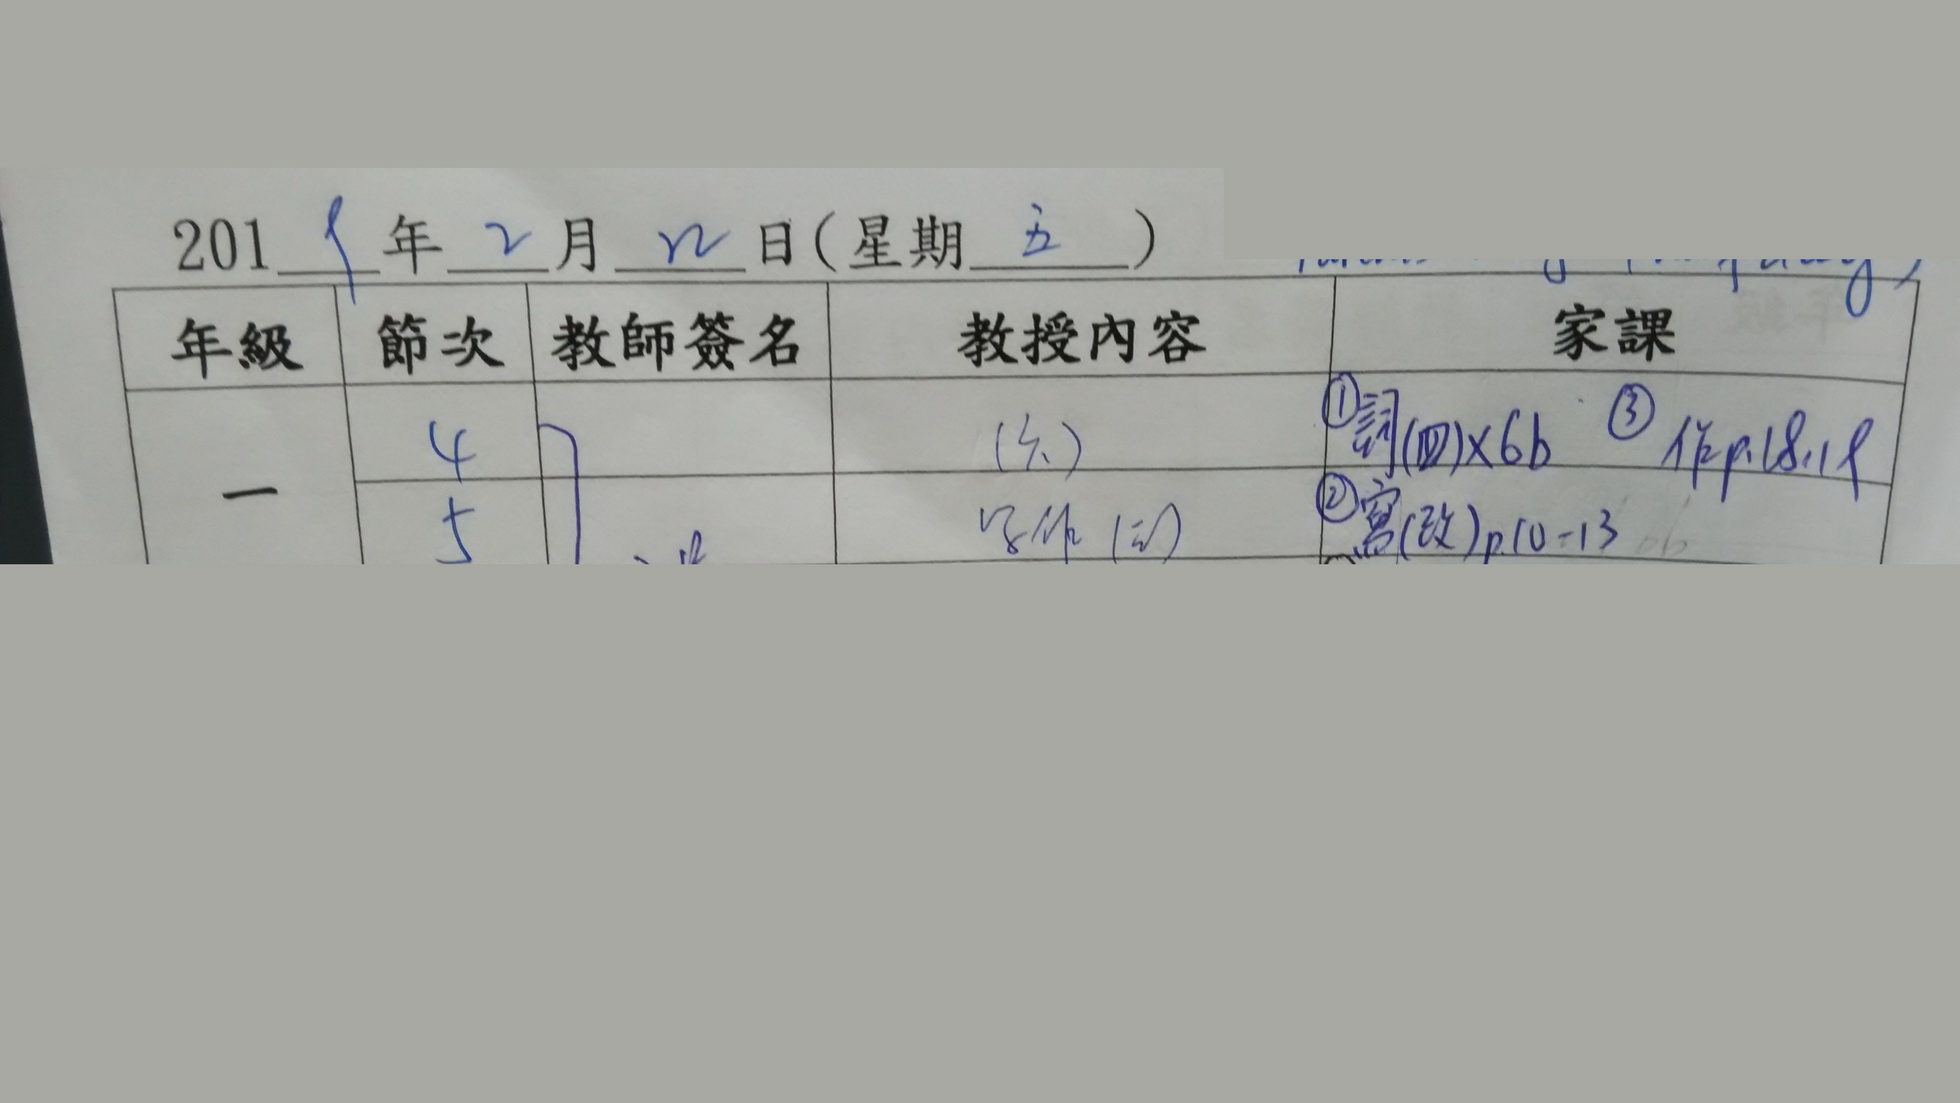 2019年2月22日(星期五)
年級 節次 教師簽名 教授內容 家課
一 4 ①詞(四)×6b ③作p.18.19
5 寫作(二) ②寫(改)p.10-13